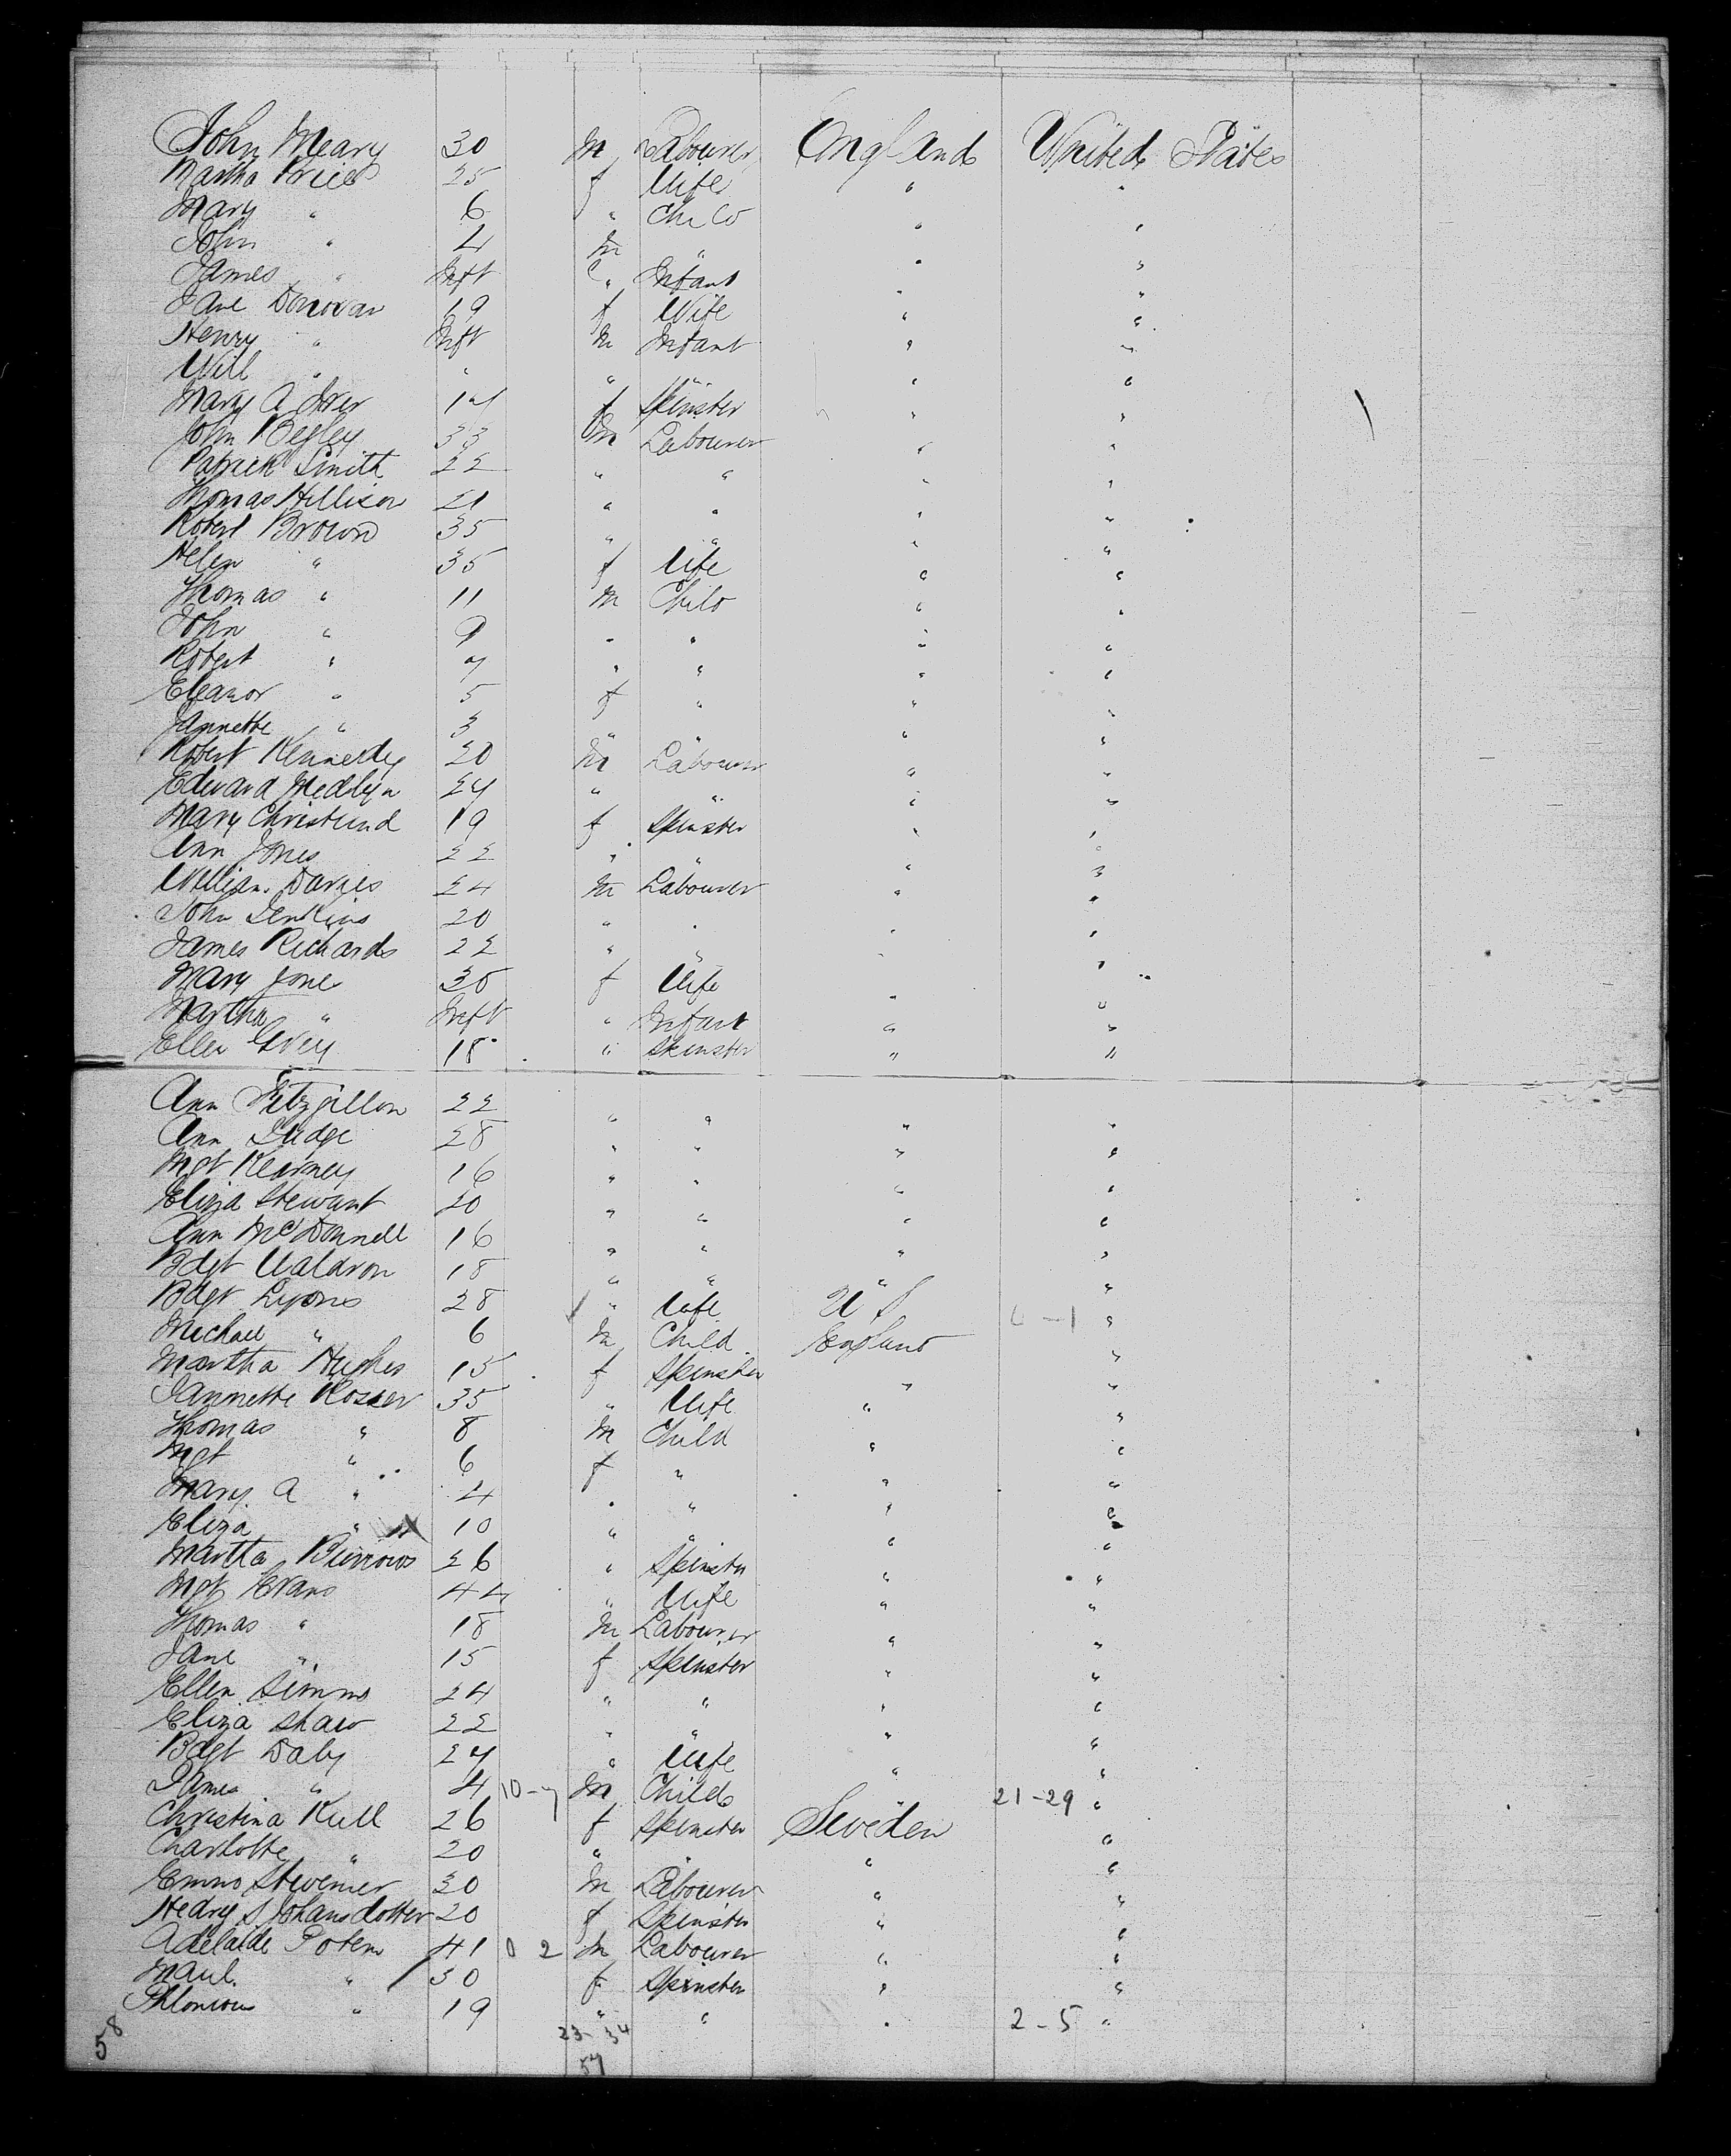 John Meary 30 m Labourer England United States
Martha Price 25 f Wife " "
Mary " 6 " Child " "
John " 4 m " " "
James " Inft " Infant " "
Jane Donovan 19 f Wife " "
Henry " Inft m Infant " "
Will " " " " " "
Mary A 17 f Spinster " "
John Begley 33 m Labourer " "
Patrick Smith 22 " " " "
Thomas Hillison 21 " " " "
Robert Brown 35 " " " "
Helen " 35 f Wife " "
Thomas " 11 m Child " "
John " 9 " " " "
Robert " 7 " " " "
Eleanor " 5 f " " "
Jannette " 3 " " " "
Robert Kennedy 20 m Labourer " "
Edward Medlyn 24 " " " "
Mary Christund 19 f Spinster " "
Ann Jones 22 " " " "
William Davies 24 m Labourer " "
John Jenkins 20 " " " "
James Richards 22 " " " "
Mary Jone 30 f Wife " "
Martha " Inft " Infant " "
Ellen Grey 18 " Spinster " "
Ann Fitzgillon 22 " " " "
Ann Judge 28 " " " "
Mgt Kearney 16 " " " "
Eliza Stewart 20 " " " "
Ann McDonnell 16 " " " "
Bdgt Waldron 18 " " " "
Bdgt Lyons 28 " Wife U S "
Michael " 6 m Child England "
Martha Hughes 15 f Spinster " "
Jannette Rosser 35 " Wife " "
Thomas " 8 m Child " "
Mgt " 6 f " " "
Mary A " 4 " " " "
Eliza " 10 " " " "
Martha Burrows 26 " Spinster " "
Mgt Evans 44 " Wife " "
Thomas " 18 m Labourer " "
Jane " 15 f Spinster " "
Ellen Simms 24 " " " "
Eliza Shaw 22 " " " "
Bdgt Daly 27 " Wife " "
James " 4 10-7 m Child " 21-29 "
Christina Kull 26 f Spinster Sweden "
Charlotte " 20 " " " "
Emmo Stwenier 30 m Labourer " "
Hedvy S Johansdotter 20 f Spinster " "
Adelaide Potem 41 0 2 m Labourer " "
Maul. " 30 f Spinster " "
" 19 " " " 2-5 "
58 23-34
57